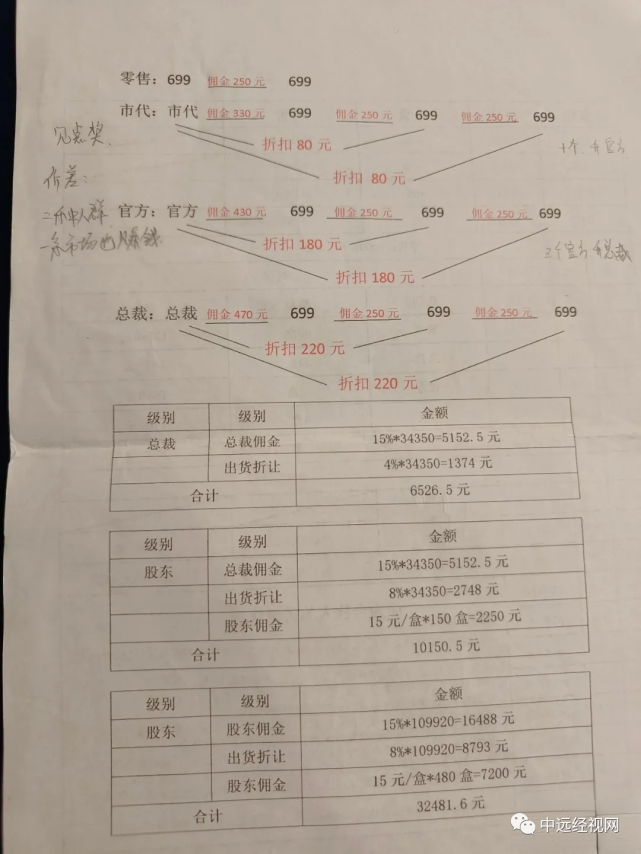 零售：699 佣金 250 元 699
市代：市代 佣金 330 元 699 佣金 250 元 699 佣金 250 元 699
折扣 80 元
折扣 80 元
见点奖
价差：
官方：官方 佣金 430 元 699 佣金 250 元 699 佣金 250 元 699
折扣 180 元
折扣 180 元
总裁：总裁 佣金 470 元 699 佣金 250 元 699 佣金 250 元 699
折扣 220 元
折扣 220 元
级别 级别 金额
总裁 总裁佣金 15%*34350=5152.5 元
出货折让 4%*34350=1374 元
合计 6526.5 元
级别 级别 金额
股东 总裁佣金 15%*34350=5152.5 元
出货折让 8%*34350=2748 元
股东佣金 15 元/盒*150 盒=2250 元
合计 10150.5 元
级别 级别 金额
股东 股东佣金 15%*109920=16488 元
出货折让 8%*109920=8793 元
股东佣金 15 元/盒*480 盒=7200 元
合计 32481.6 元
中远经视网